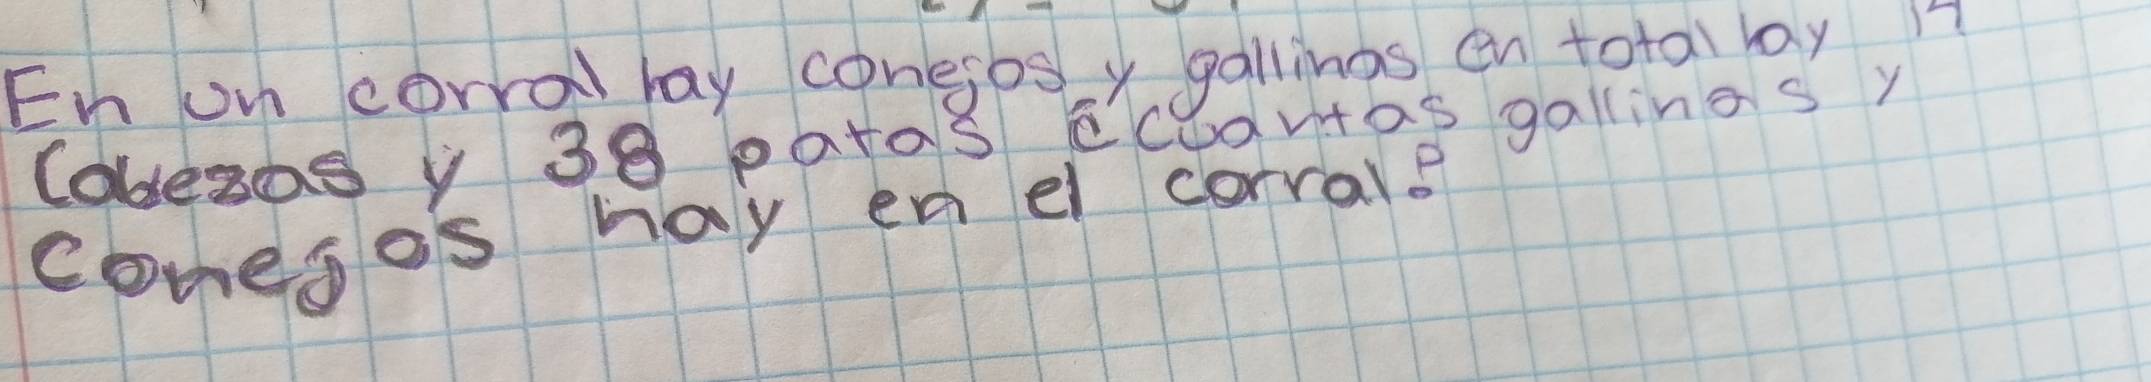 En un corral hay conejos y gallinas en total hay 14
Cabezas y 38 patas ¿cuantas gallinas y
conejos hay en el corral?